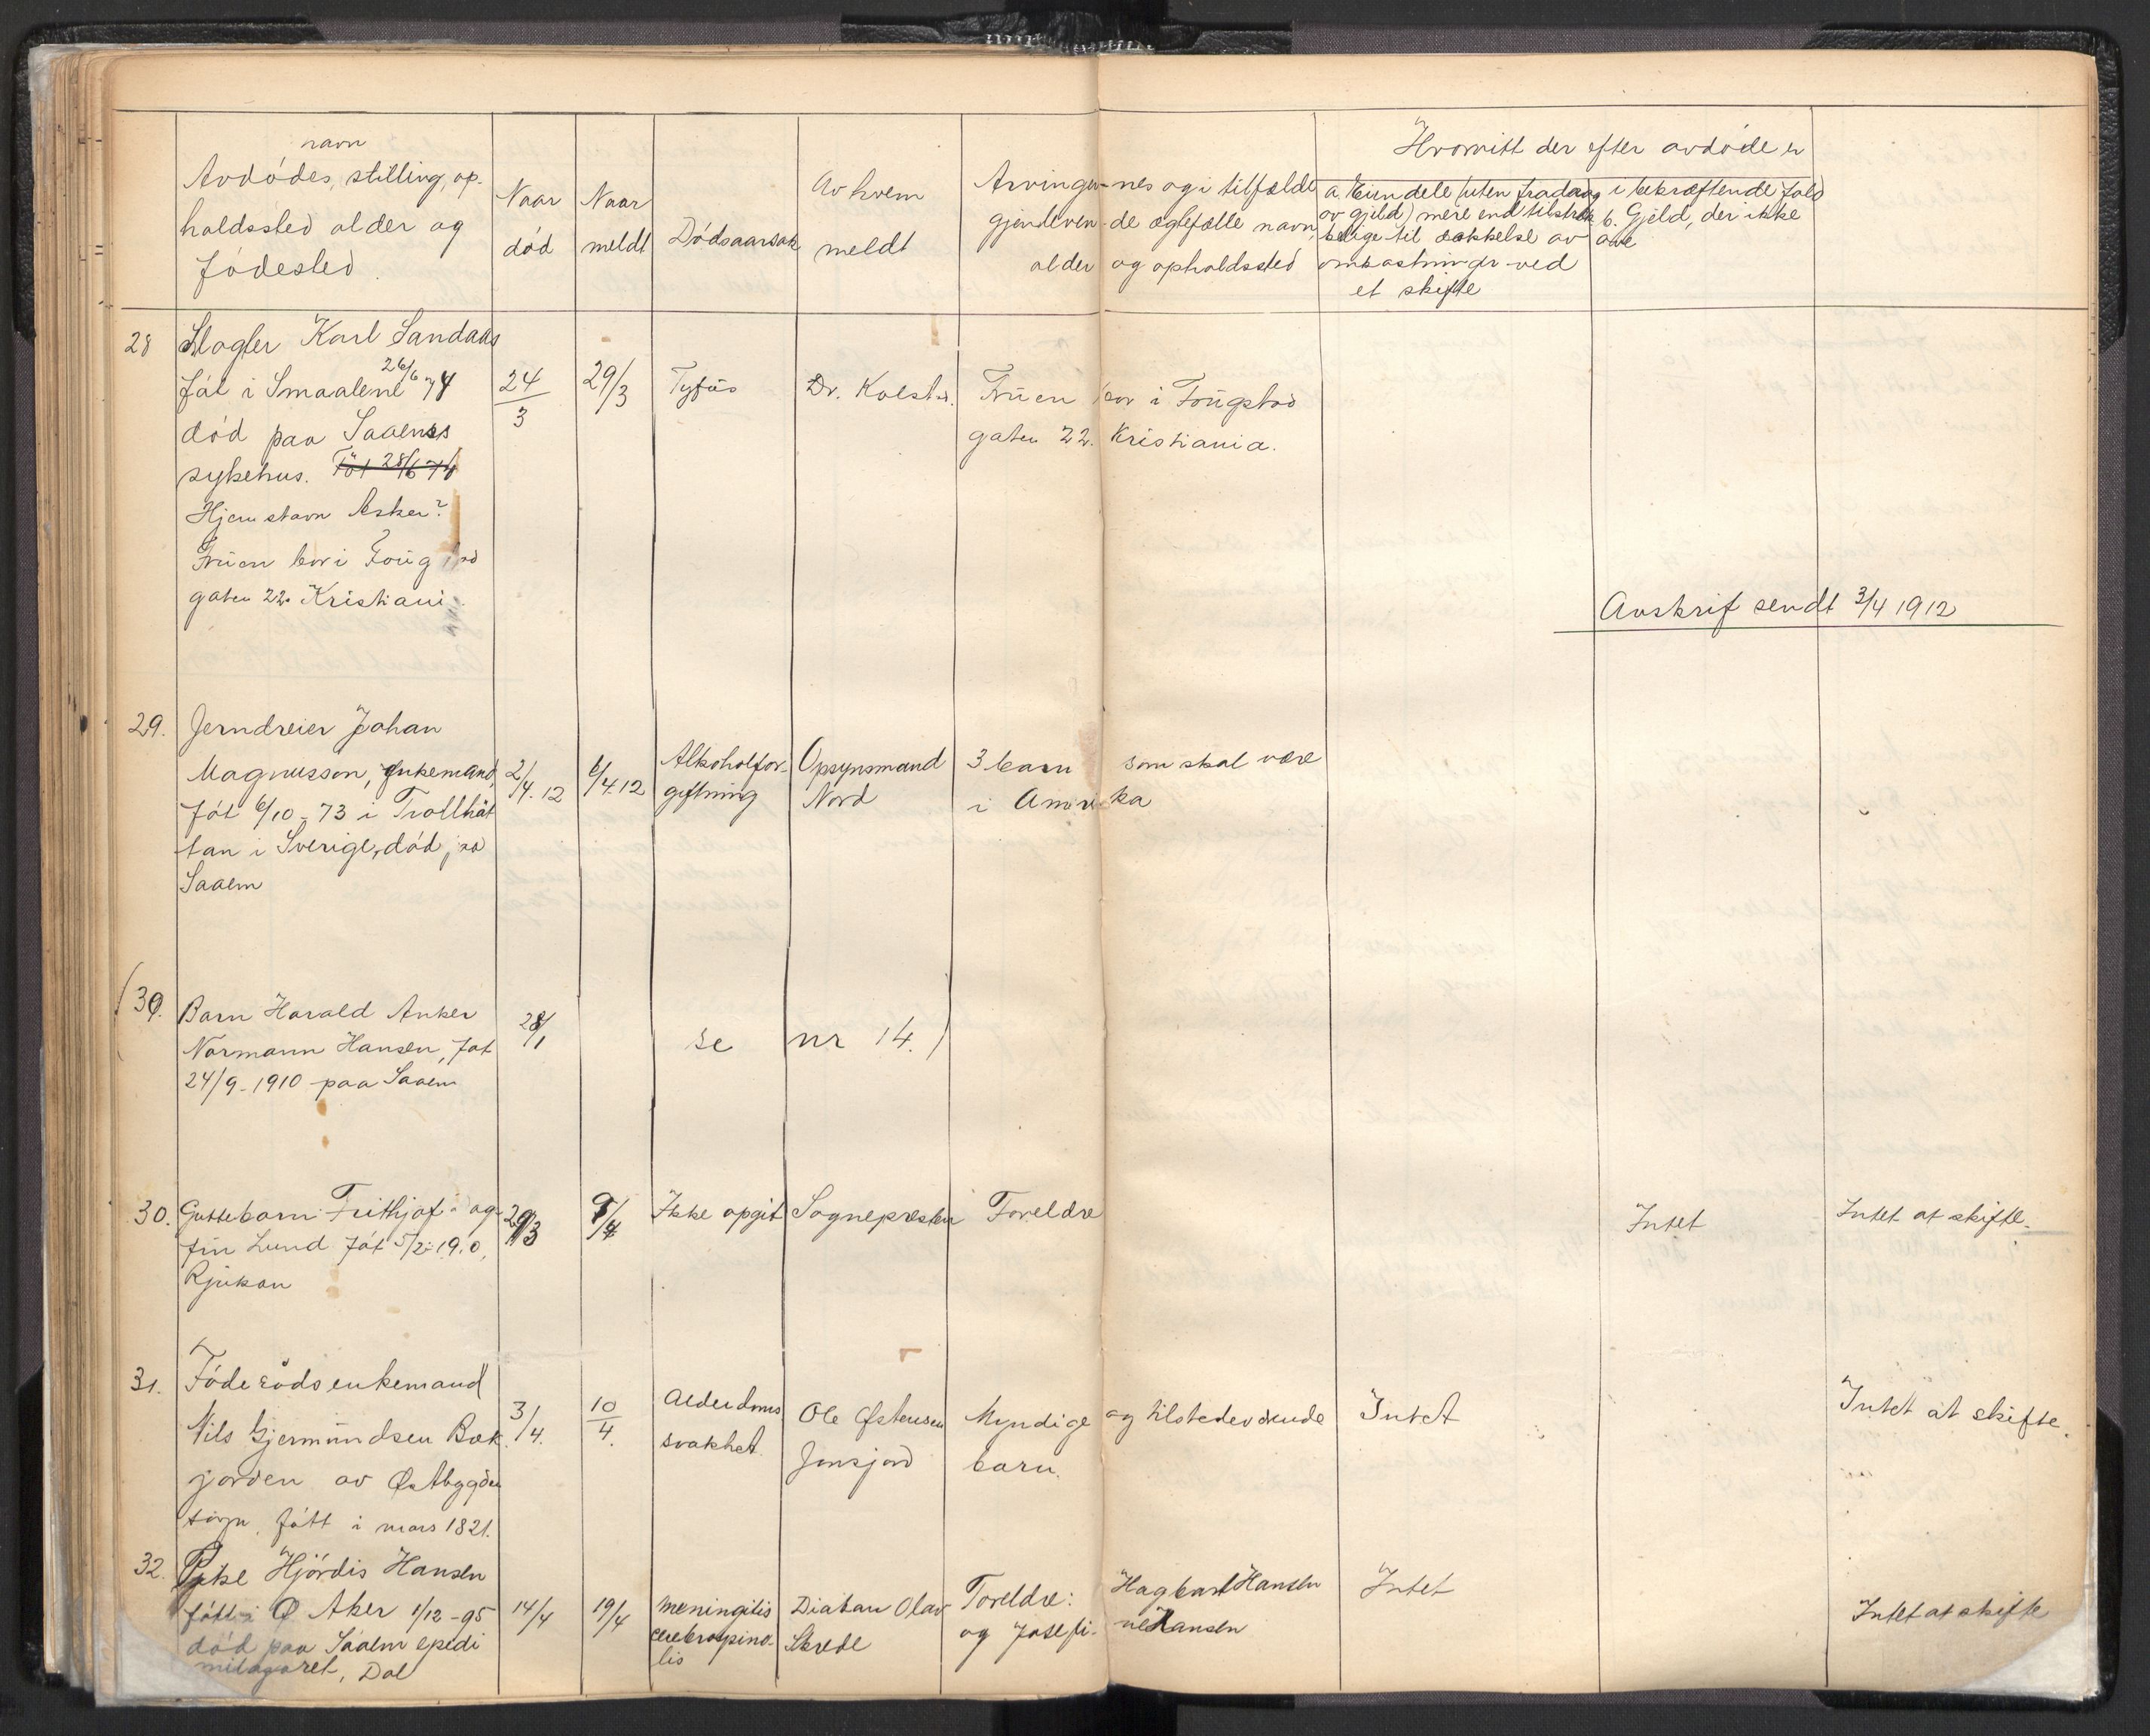 navn
Avdødes, stilling, op-
holdssted alder og
fødested.
Naar
død
Naar
meldt
Dødsaarsak
Av hvem
meldt
Arvinger-nes og i tilfælde
gjenleven-de ægtefælle navn,
alder og opholdssted
Hvorvitt der efter avdøde er
a. Eiendele (uten fradrag
av gjeld) mere end tilstræk
kelige til dækkelse av
omkostninger ved
et skifte
i bekræftende fald
b. Gjeld, der ikke
28 Slagter Karl Sandaas
26/6 74
føt i Smaalene
død paa Saaems
sykehus. Føt 28/6 74
Hjemstavn Asker?
Fruen bor i Foug
gaten 22. Kristiani
24/3
29/3
Tyfus
Dr. Kolstad.
Fruen bor i Fougstad
gaten 22. Kristiania.
Avskrif sendt 3/4 1912
29. Jerndreier Johan
Magnusson, enkemand,
føt 6/10-73 i Trollhät
tan i Sverige, død paa
Saaem
2/4.12
6/4.12
Alkoholfor-
giftning
Opsynsmand
Nord
3 barn som skal være
i Amerika
(30. Barn Harald Anker
Normann Hansen, føt
24/9-1910 paa Saaem
28/1
se nr 14.)
30. Guttebarn Frithjof Dag-
fin Lund føt 5/2-1910,
Rjukan
29/3
9/4
Ikke opgit
Sognepresten
Foreldre
Intet
Intet at skifte.
31. Føderådsenkemand
Nils Gjermundsen Bæk
jorden av Østbygden
sogn, født i mars 1821.
3/4.
10/4.
Alderdoms
svakhet
Ole Østensen
Jonsjord
Myndige og tilstedeværende
barn.
Intet
Intet at skifte.
32. Pike Hjördis Hansen
født i Ø Aker 1/12-95
død paa Saaem epedi
milagaret, Dal
14/4
19/4
meningitis
cerebrospina-
lis
Diakon Olav
Skrede
Foreldre: Hagbart Hansen
og Josefi-ne Hansen
Intet
Intet at skifte